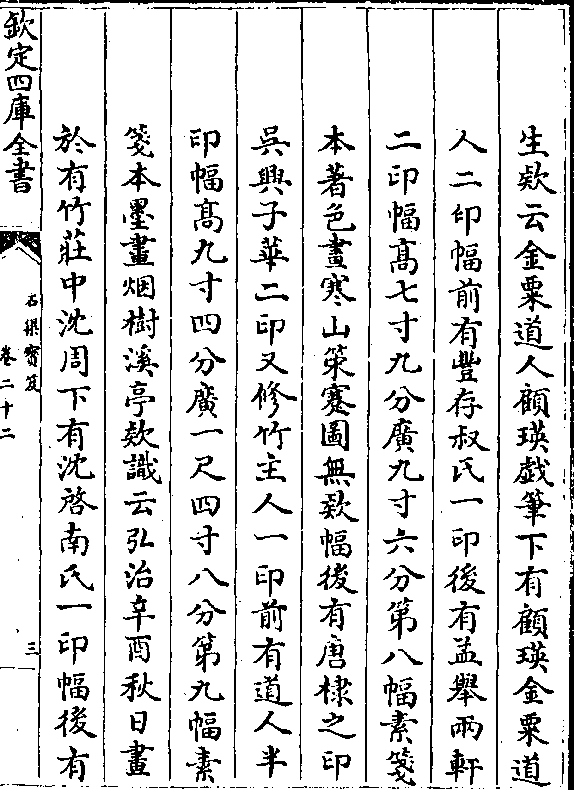 生欵云金粟道人顧瑛戯筆下有顧瑛金粟道
人二印幅前有豐存叔氏一印後有孟舉兩軒
二印幅髙七寸九分廣九寸六分第八幅素箋
本著色畫寒山策蹇圖無欵幅後有唐棣之印
吳興子華二印又修竹主人一印前有道人半
印幅髙九寸四分廣一尺四寸八分第九幅素
箋本墨畫烟樹溪亭欵識云弘治辛酉秋日畫
於有竹莊中沈周下有沈啓南氏一印幅後有
欽定四庫全書
石渠寳笈
卷二十二
三